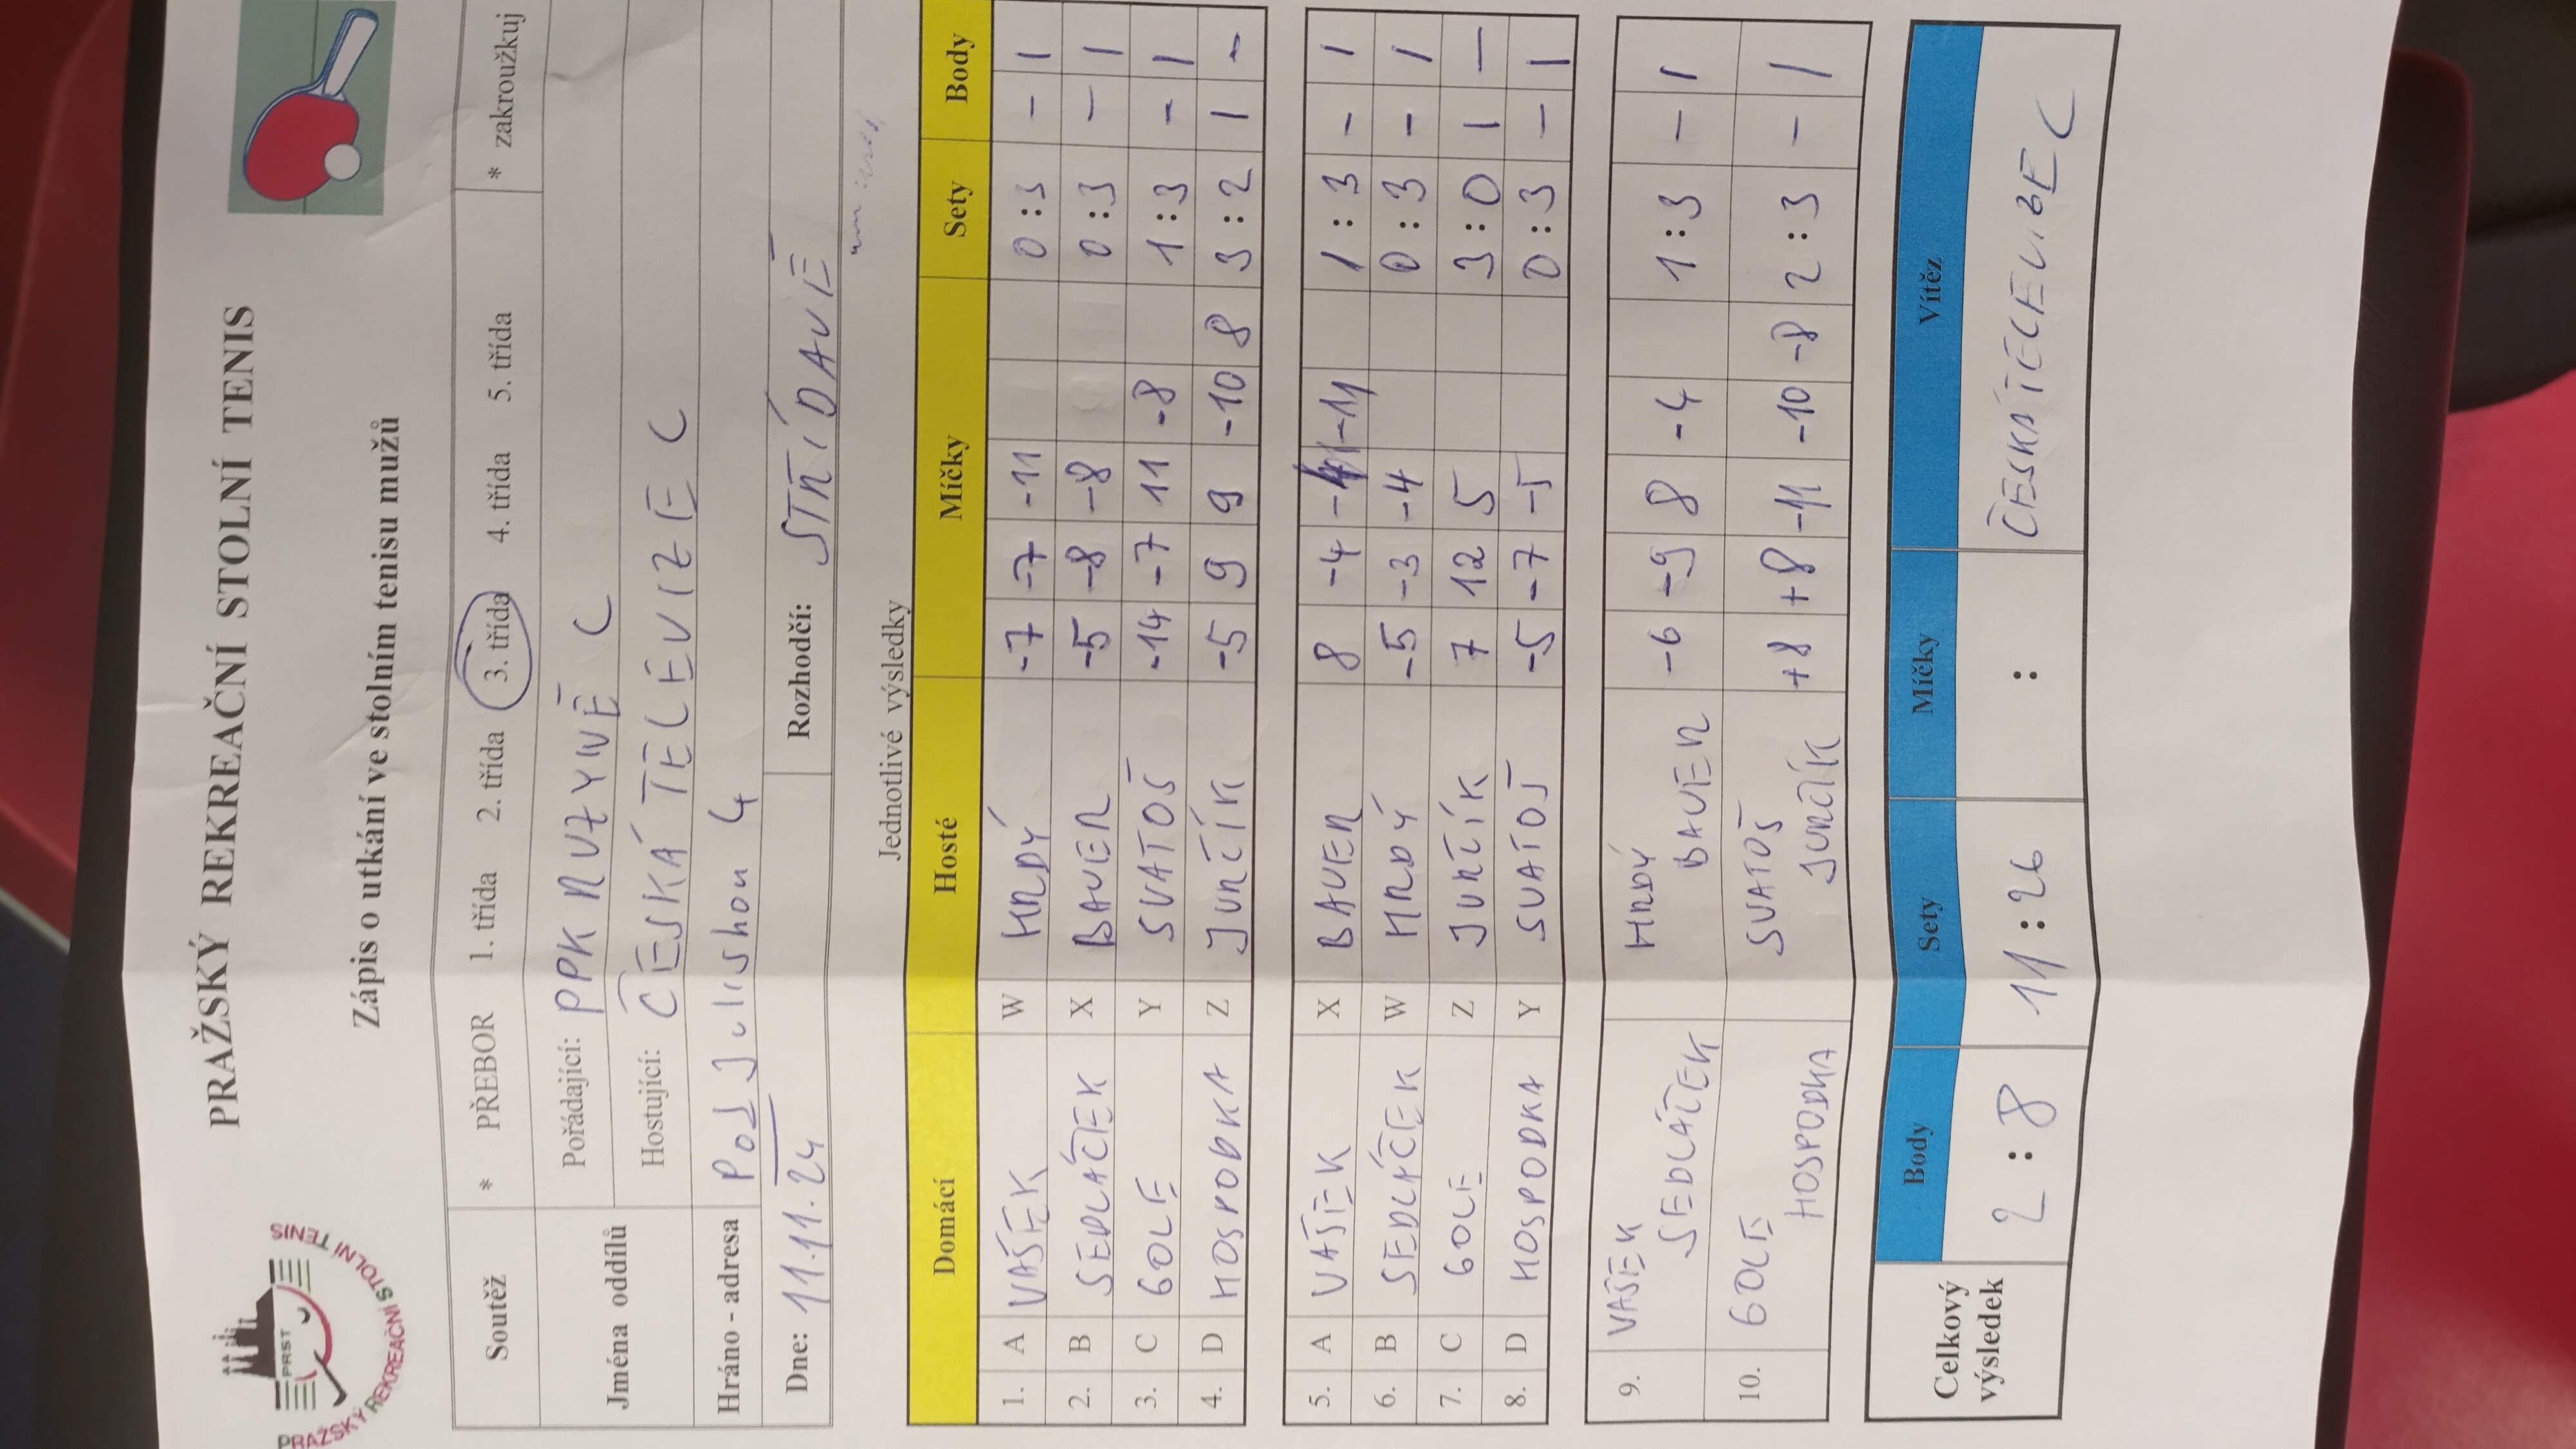 PRAŽSKÝ REKREAČNÍ STOLNÍ TENIS
PRST
PRAŽSKÝ REKREAČNÍ STOLNÍ TENIS
Zápis o utkání ve stolním tenisu mužů
Soutěž * PŘEBOR 1. třída 2. třída 3. třída 4. třída 5. třída * zakroužkuj
Jména oddílů
Pořádající: PPK RUZYNĚ C
Hostující: ČESKÁ TELEVIZE C
Hráno - adresa Pod Julishou 4
Dne: 11.11.24 Rozhodčí: STŘÍDAVĚ
Jednotlivé výsledky
Domácí Hosté Míčky Sety Body
1. A VAŠEK W HRDÝ -7 -7 -11 0 : 3 - 1
2. B SEDLÁČEK X BAUER -5 -8 -8 0 : 3 - 1
3. C GOLE Y SVATOŠ -14 -7 11 -8 1 : 3 - 1
4. D HOSPODKA Z JURČÍK -5 9 9 -10 8 3 : 2 1 -
5. A VAŠEK X BAUER 8 -4 -11 1 : 3 - 1
6. B SEDLÁČEK W HRDÝ -5 -3 -4 0 : 3 - 1
7. C GOLE Z JURČÍK 7 12 5 3 : 0 1 —
8. D HOSPODKA Y SVATOŠ -5 -7 -5 0 : 3 - 1
9. VAŠEK SEDLÁČEK HRDÝ BAUER -6 -9 8 -4 1 : 3 - 1
10. GOLE HOSPODKA SVATOŠ JURČÍK +8 +8 -11 -10 -8 2 : 3 - 1
Celkový výsledek
Body Sety Míčky Vítěz
2 : 8 11 : 26 : ČESKÁ TELEVIZE C